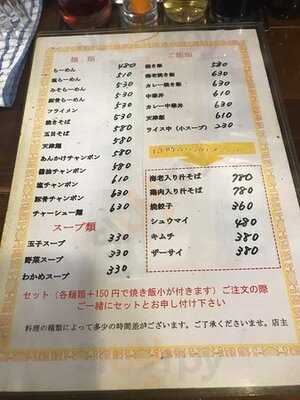 麺類
らーめん 480
塩らーめん 510
みそらーめん 510
豚骨らーめん 510
フライメン 530
焼きそば 580
五目そば 580
天津麺 580
あんかけチャンポン 580
醤油チャンポン 580
塩チャンポン 610
豚骨チャンポン 630
チャーシュー麺 630
スープ類
玉子スープ 330
野菜スープ 330
わかめスープ 330
ご飯類
焼き飯 580
海老焼き飯 630
カレー焼き飯 630
中華丼 610
カレー中華丼 630
天津飯 610
ライス中（小スープ） 230
海老入り汁そば 780
鶏肉入り汁そば 780
焼餃子 360
シュウマイ 480
キムチ 380
ザーサイ 380
セット（各麺類＋150円で焼き飯小が付きます）ご注文の際
一緒にセットとお申し付け下さい
料理の種類によって多少の時間差がございます。ご了承くださいませ。店主